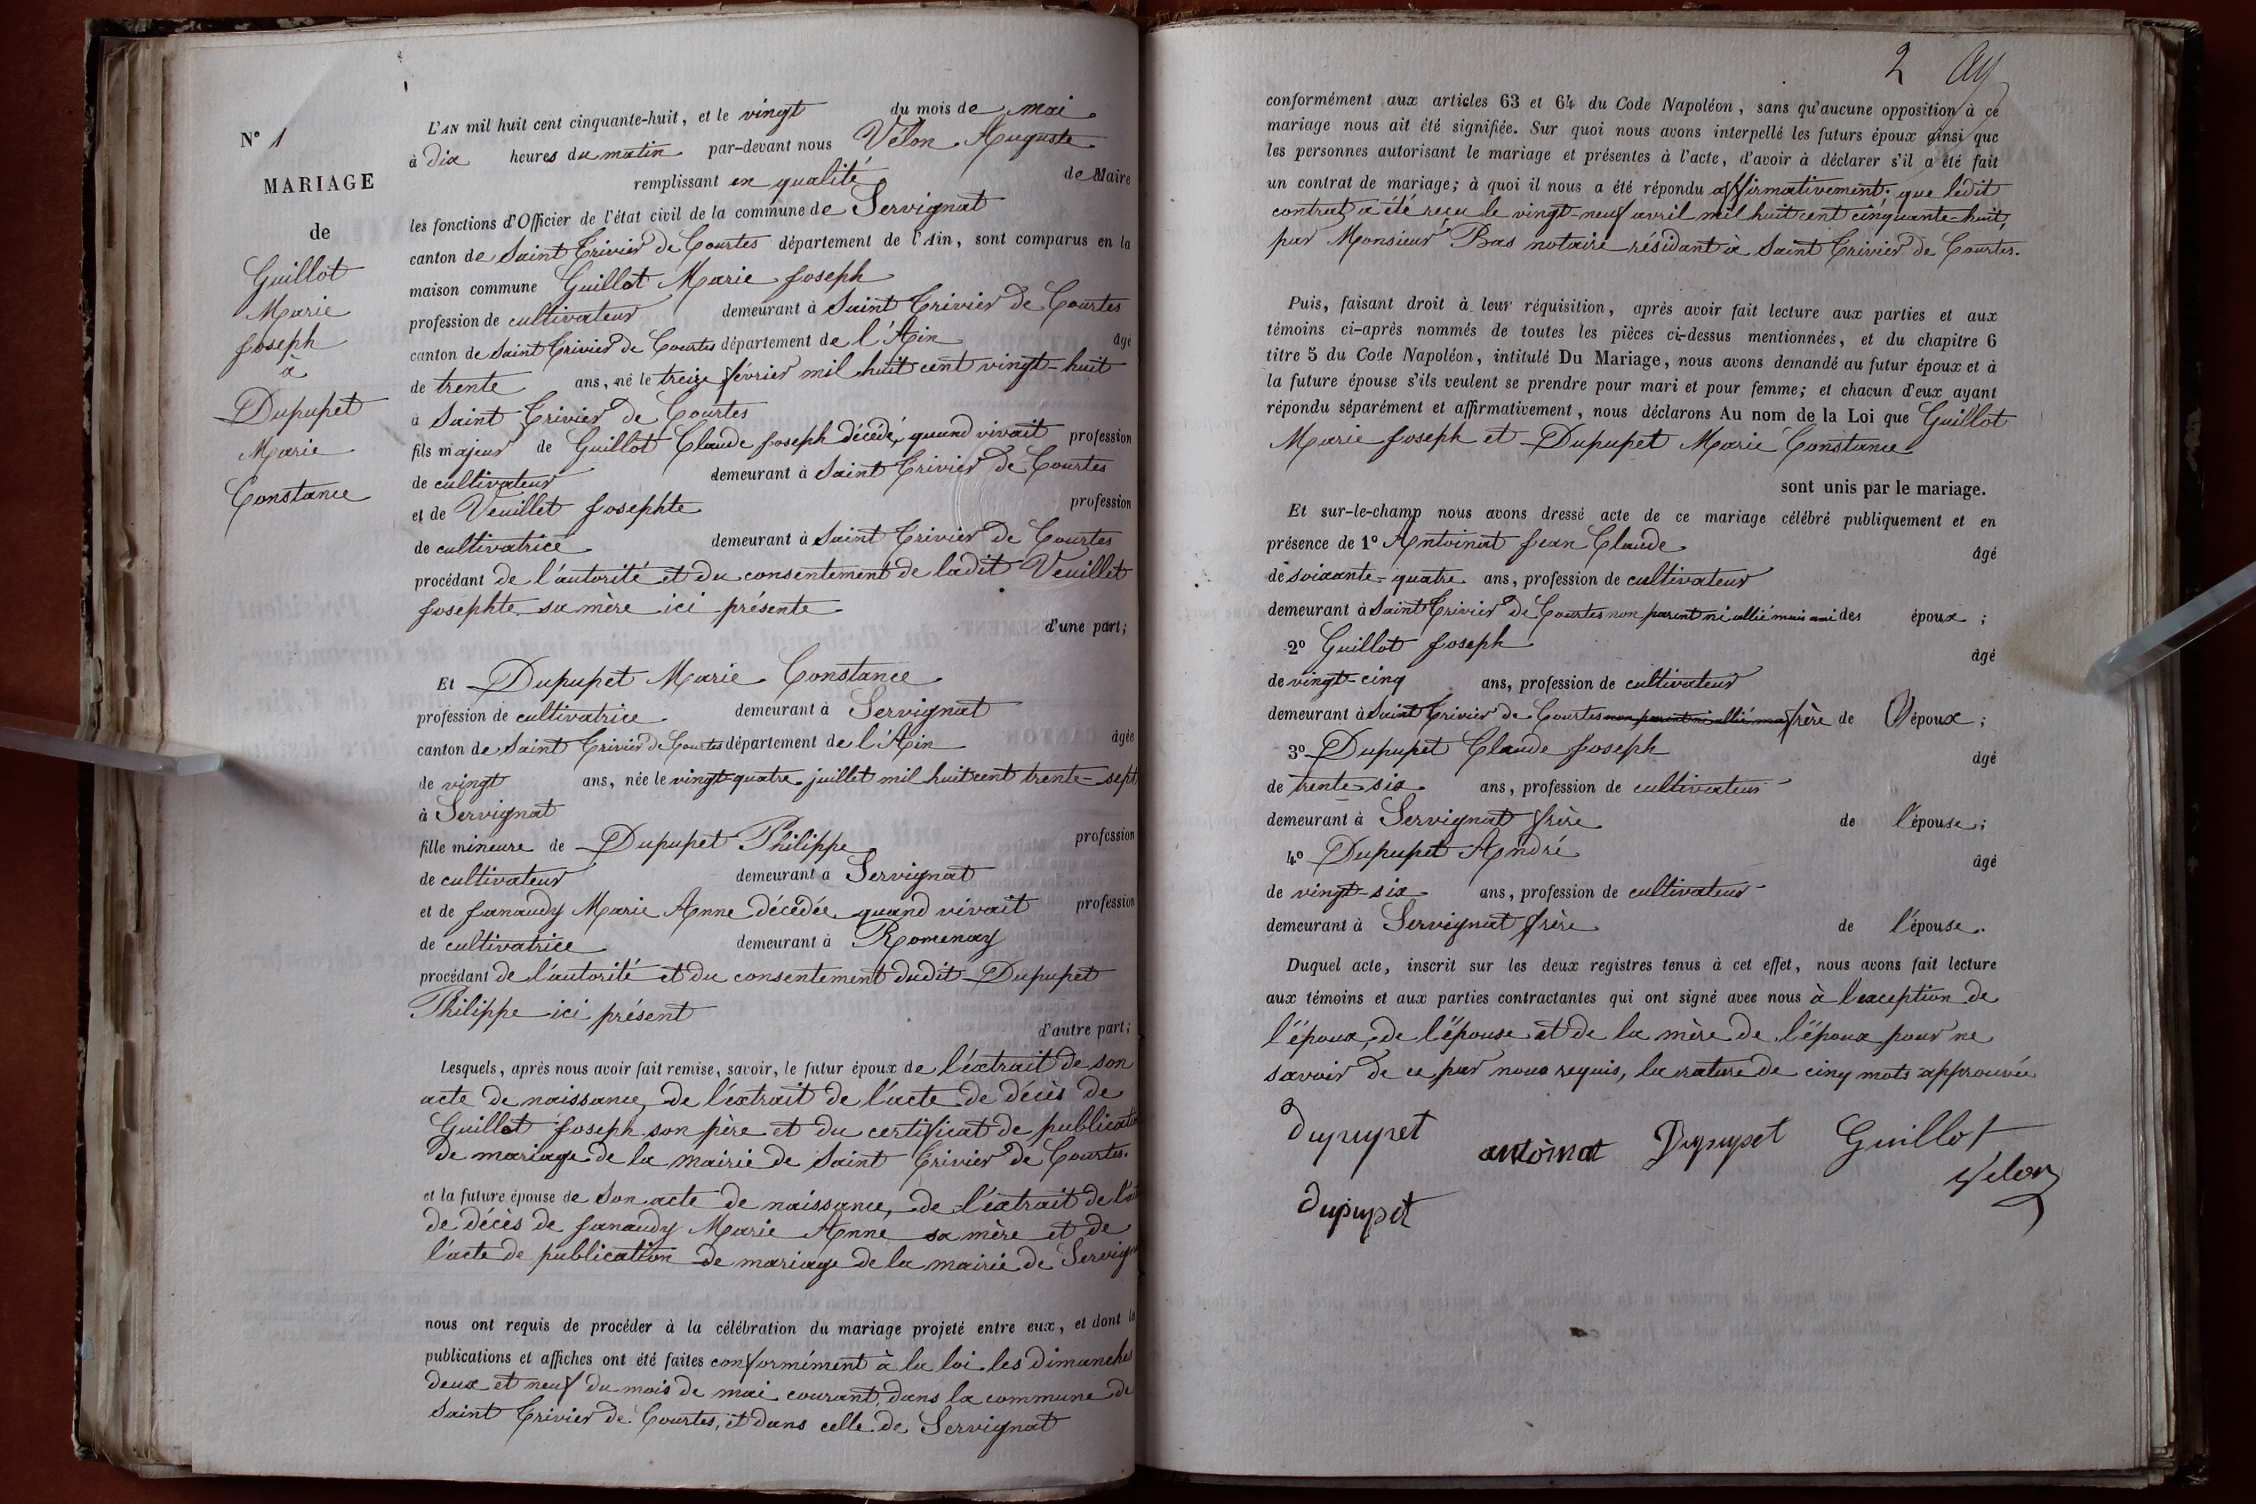 N° 1
MARIAGE
de
Guillot
Marie
Joseph
à
Dupupet
Marie
Constance
L'AN mil huit cent cinquante-huit, et le vingt du mois de mai
à dix heures du matin par-devant nous Vélon Auguste
remplissant en qualité de Maire
les fonctions d'Officier de l'état civil de la commune de Servignat
canton de Saint Trivier de Courtes département de l'Ain, sont comparus en la
maison commune Guillot Marie Joseph
profession de cultivateur demeurant à Saint Trivier de Courtes
canton de Saint Trivier de Courtes département de l'Ain âgé
de trente ans, né le treize février mil huit cent vingt-huit
à Saint Trivier de Courtes
fils majeur de Guillot Claude Joseph décédé, quand vivait profession
de cultivateur demeurant à Saint Trivier de Courtes
et de Veuillet Josephte profession
de cultivatrice demeurant à Saint Trivier de Courtes
procédant de l'autorité et du consentement de ladit Veuillet
Josephte sa mère ici présente
d'une part;
Et Dupupet Marie Constance
profession de cultivatrice demeurant à Servignat
canton de Saint Trivier de Courtes département de l'Ain âgée
de vingt ans, née le vingt-quatre juillet mil huit cent trente-sept
à Servignat
fille mineure de Dupupet Philippe profession
de cultivateur demeurant à Servignat
et de Janaudy Marie Anne décédée quand vivait profession
de cultivatrice demeurant à Romenay
procédant de l'autorité et du consentement dudit Dupupet
Philippe ici présent
d'autre part;
Lesquels, après nous avoir fait remise, savoir, le futur époux de l'extrait de son
acte de naissance, de l'extrait de l'acte de décès de
Guillot Joseph son père et du certificat de publicatio
de mariage de la mairie de Saint Trivier de Courtes.
et la future épouse de son acte de naissance, de l'extrait de l'a
de décès de Janaudy Marie Anne sa mère et de
l'acte de publication de mariage de la mairie de Servign
nous ont requis de procéder à la célébration du mariage projeté entre eux, et dont le
publications et affiches ont été faites conformément à la loi les dimanches
deux et neuf du mois de mai courant, dans la commune de
Saint Trivier de Courtes, et dans celle de Servignat
2
conformément aux articles 63 et 64 du Code Napoléon, sans qu'aucune opposition à ce
mariage nous ait été signifiée. Sur quoi nous avons interpellé les futurs époux ainsi que
les personnes autorisant le mariage et présentes à l'acte, d'avoir à déclarer s'il a été fait
un contrat de mariage; à quoi il nous a été répondu affirmativement que ledit
contrat a été reçu le vingt-neuf avril mil huit cent cinquante-huit,
par Monsieur Bas notaire résidant à Saint Trivier de Courtes.
Puis, faisant droit à leur réquisition, après avoir fait lecture aux parties et aux
témoins ci-après nommés de toutes les pièces ci-dessus mentionnées, et du chapitre 6
titre 5 du Code Napoléon, intitulé Du Mariage, nous avons demandé au futur époux et à
la future épouse s'ils veulent se prendre pour mari et pour femme; et chacun d'eux ayant
répondu séparément et affirmativement, nous déclarons Au nom de la Loi que Guillot
Marie Joseph et Dupupet Marie Constance
sont unis par le mariage.
Et sur-le-champ nous avons dressé acte de ce mariage célébré publiquement et en
présence de 1° Antoinat Jean Claude âgé
de soixante-quatre ans, profession de cultivateur
demeurant à Saint Trivier de Courtes non parent ni allié mais ami des époux ;
2° Guillot Joseph âgé
de vingt-cinq ans, profession de cultivateur
demeurant à Saint Trivier de Courtes non parent ni allié ma frère de l'époux ;
3° Dupupet Claude Joseph âgé
de trente six ans, profession de cultivateur
demeurant à Servignat frère de l'épouse ;
4° Dupupet André âgé
de vingt-six ans, profession de cultivateur
demeurant à Servignat frère de l'épouse.
Duquel acte, inscrit sur les deux registres tenus à cet effet, nous avons fait lecture
aux témoins et aux parties contractantes qui ont signé avec nous à l'exception de
l'époux, de l'épouse et de la mère de l'époux pour ne
savoir de ce par nous requis, la rature de cinq mots approuvée
Dupupet antoinat Dupupet Guillot
Velon
Dupupet